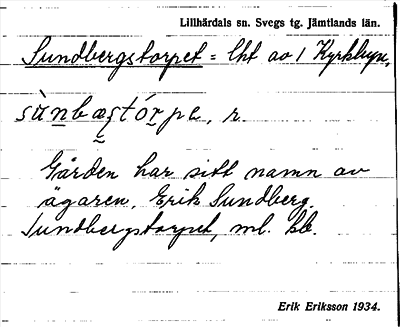 Lillhärdals sn. Svegs tg. Jämtlands län.
Sundbergstorpet = lht av 1 Kyrkbyn,
sùnbæʂtórpe, n.
Gården har sitt namn av
ägaren, Erik Sundberg.
Sundbergstorpet, ml. kb.
Erik Eriksson 1934.